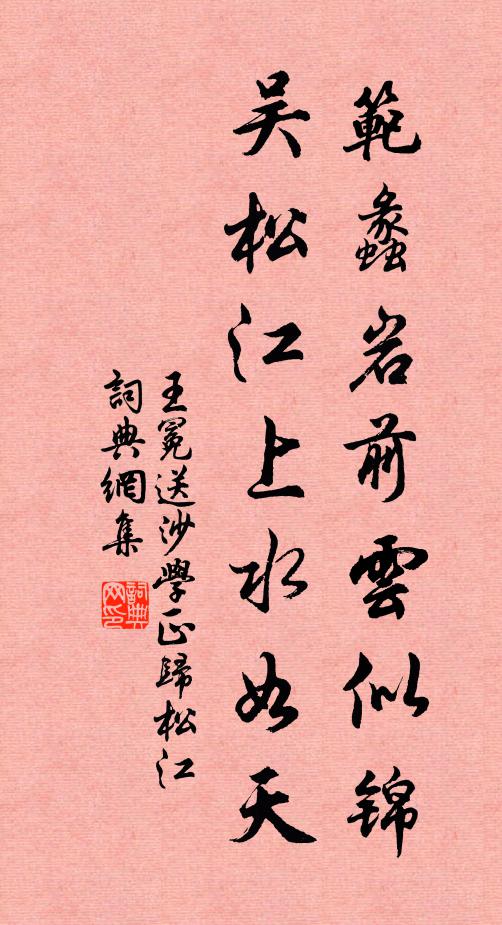 範蠡岩前雲似錦
吴松江上水如天
王冕送沙學正歸松江
詞典網集
詞典
网印